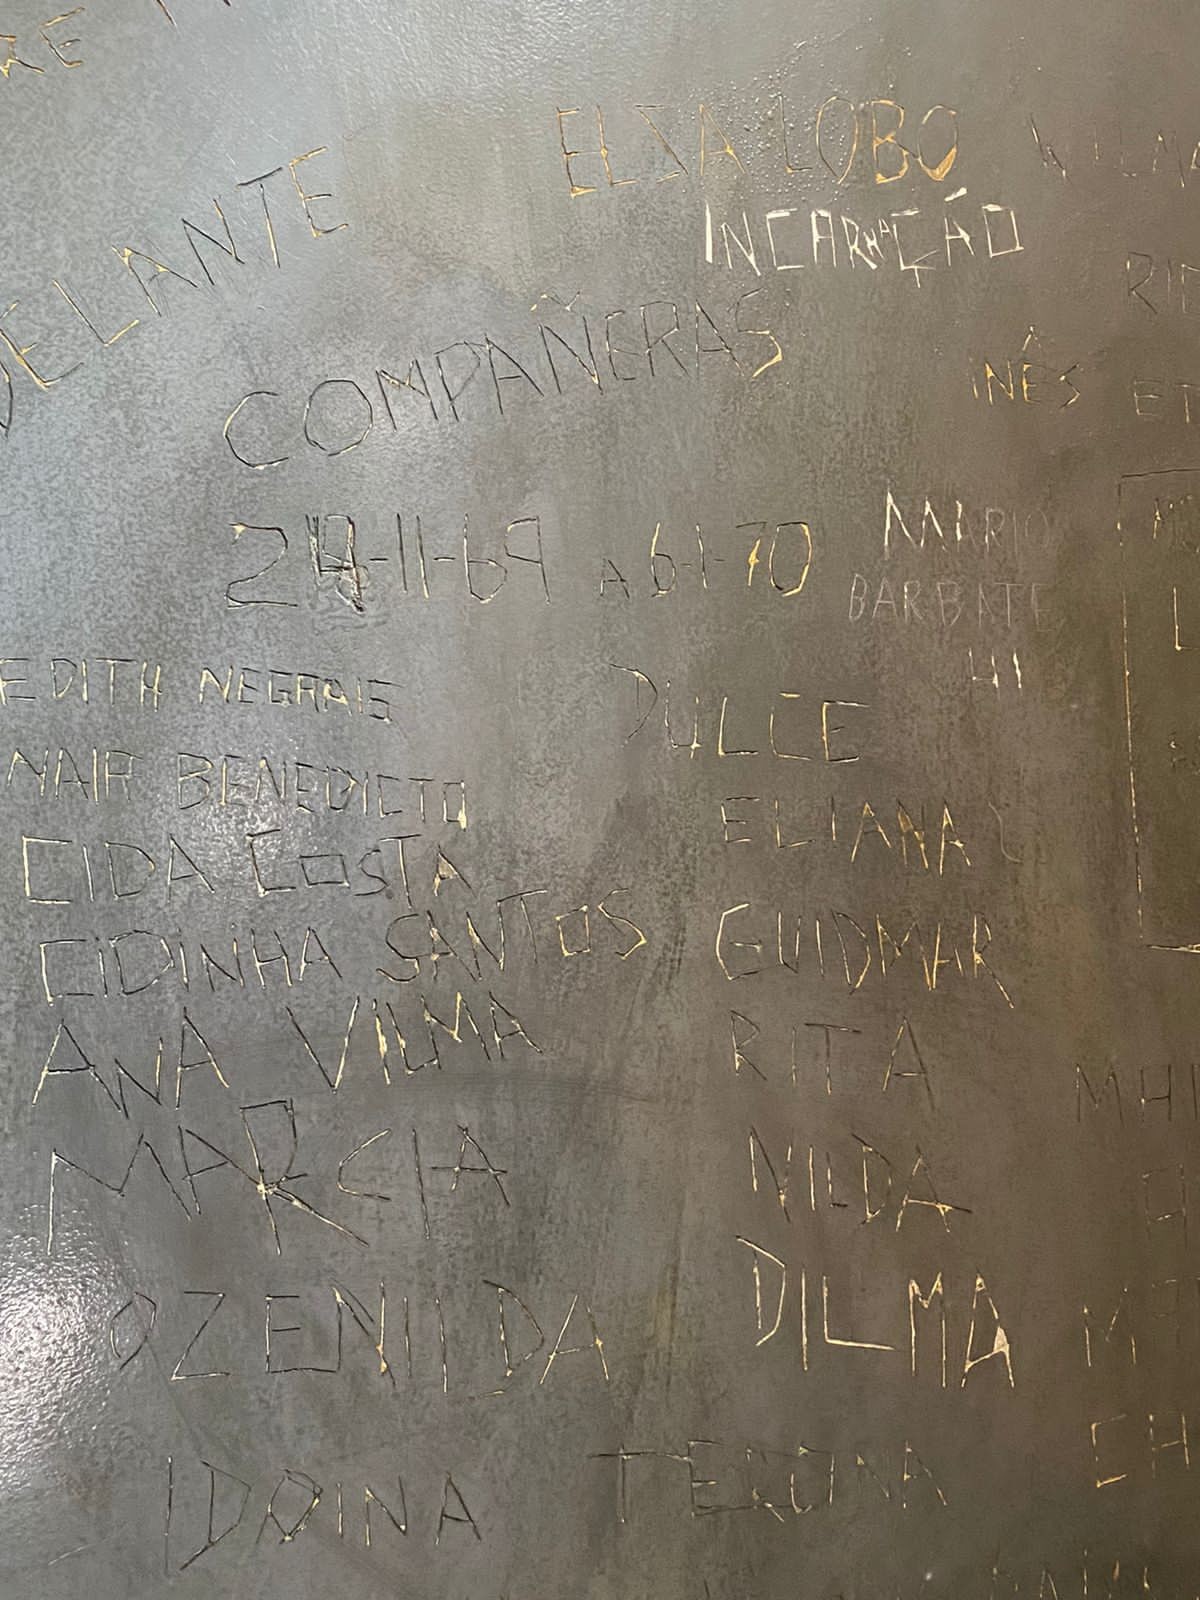 ELZA LOBO
INCARNAÇÃO
DELANTE
COMPAÑERAS
INÊS
24-11-69 A 6-1-70
MARIO
BARBATE
EDITH NEGRAIS
DULCE
NAIR BENEDICTO
ELIANA
CIDA COSTA
CIDINHA SANTOS
GUIDMAR
ANA VILMA
RITA
MARCIA
NILDA
OZENILDA
DILMA
IDOINA